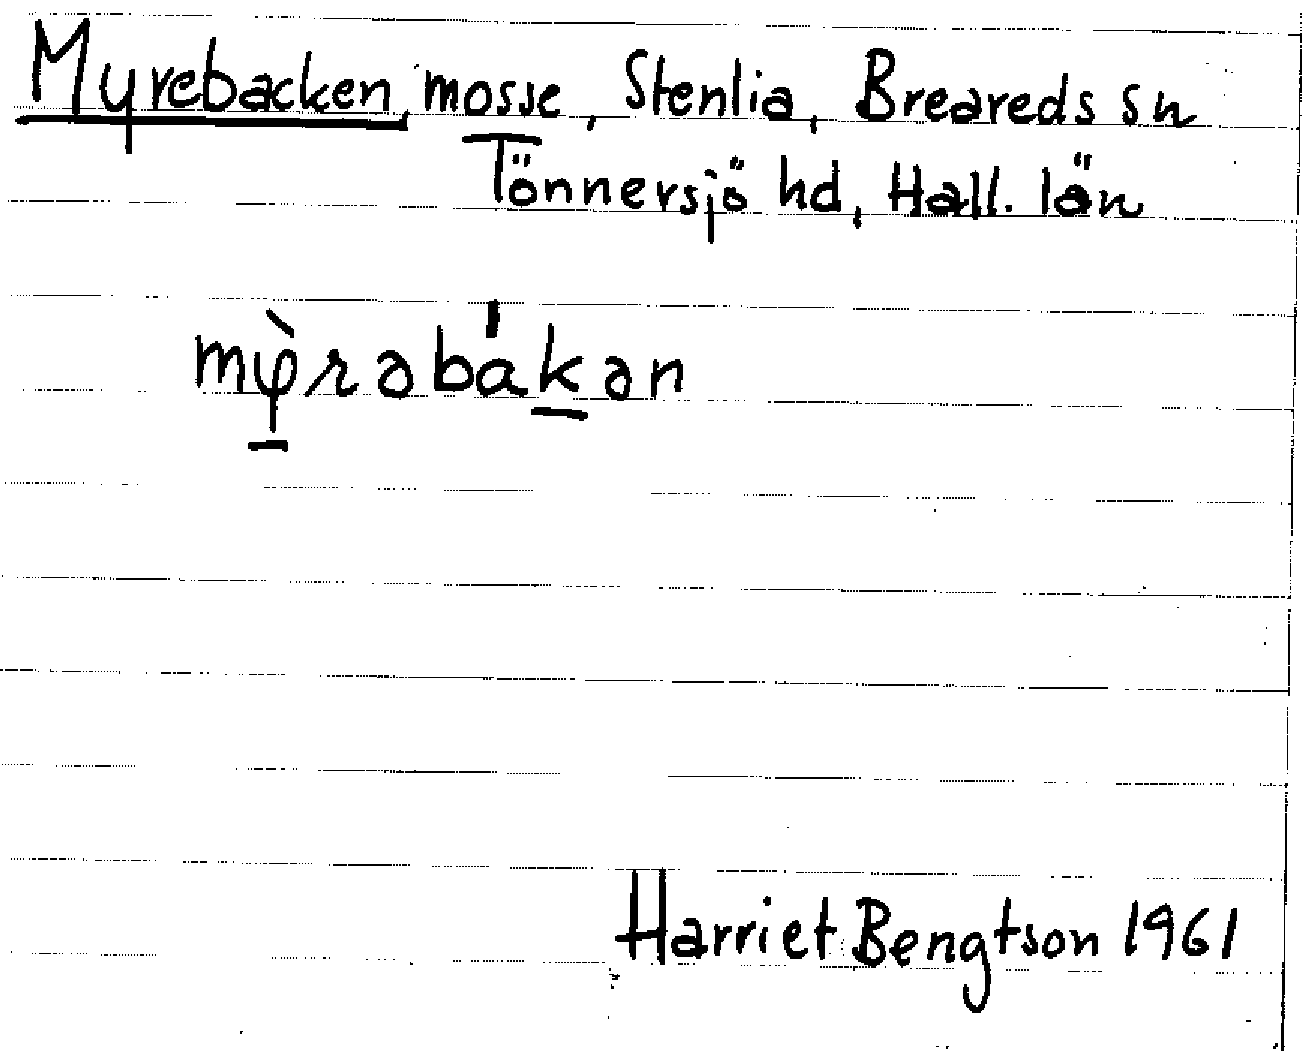 Myrebacken, mosse, Stenlia, Breareds sn
Tönnersjö hd, Hall. län
mφ̱̀rəbáḵən
Harriet Bengtson 1961